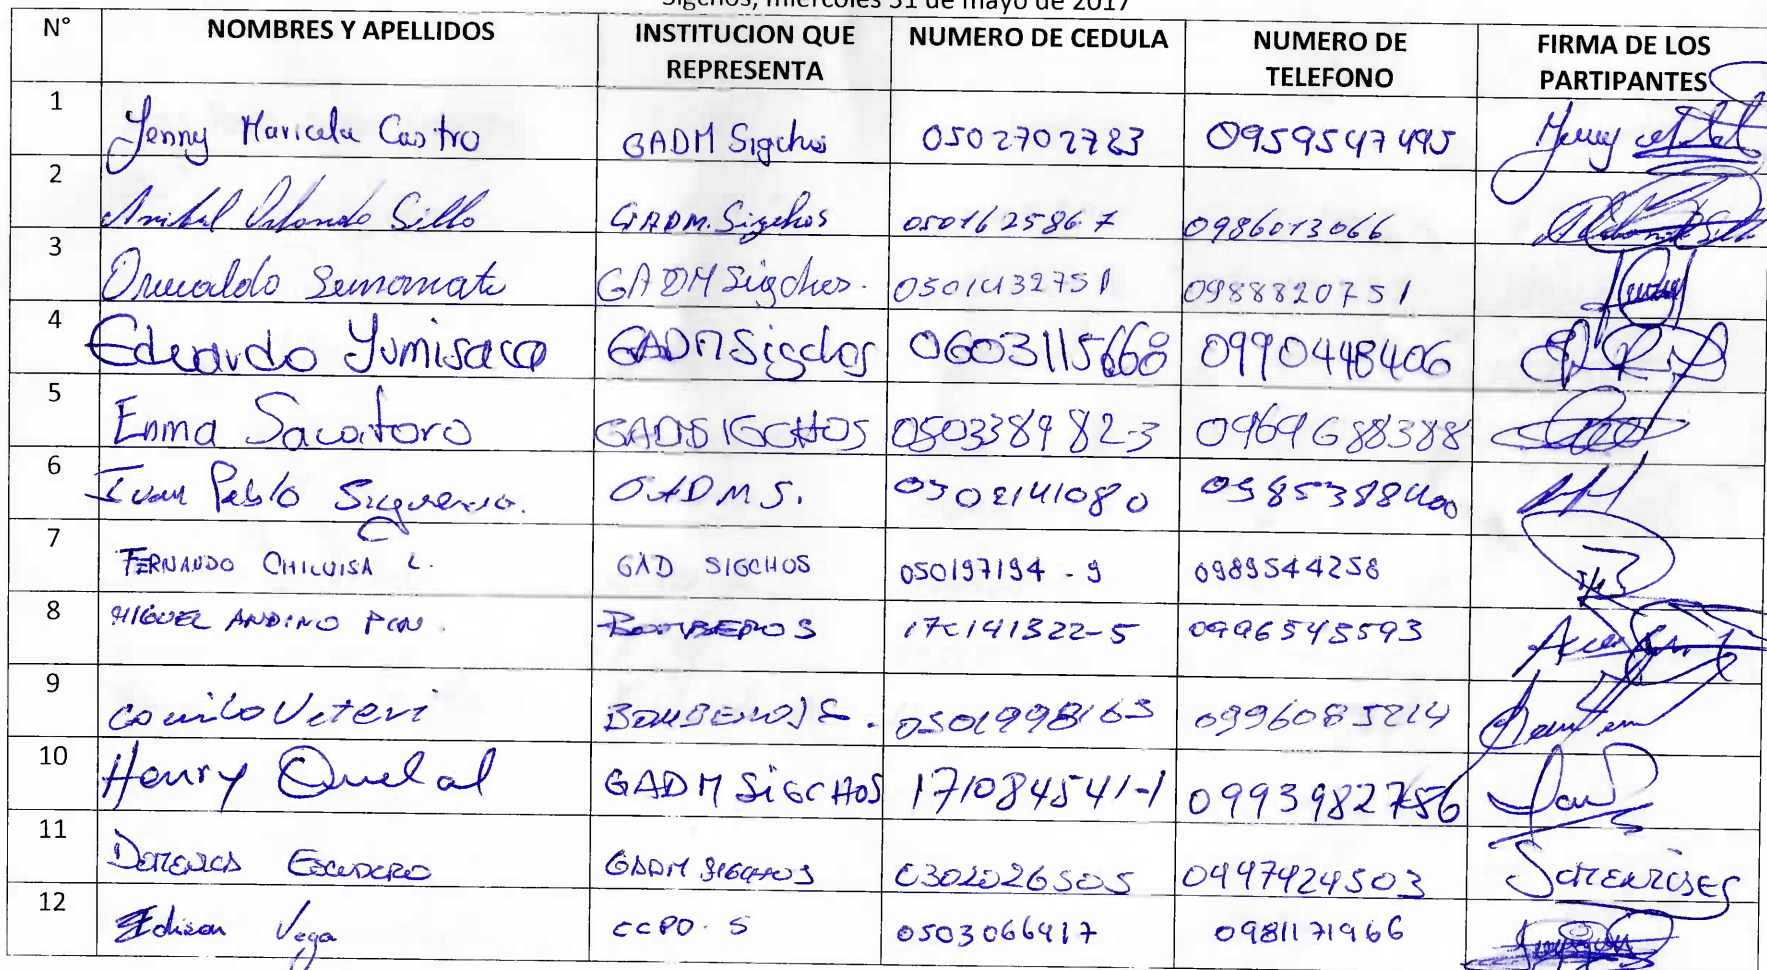 Sigchos, miércoles 31 de mayo de 2017
N° NOMBRES Y APELLIDOS INSTITUCION QUE REPRESENTA NUMERO DE CEDULA NUMERO DE TELEFONO FIRMA DE LOS PARTIPANTES
1 Jenny Maricela Castro GADM Sigchos 0502702783 0959547495
2 Anibal Orlando Sillo GADM. Sigchos 050162586-7 0986013066
3 GADM Sigchos. 0501432751 0988820751
4 Eduardo Yumisaca GADM Sigchos 0603115668 0990448406
5 Enma Sacatoro GADSIGCHOS 050338982-3 0969688388
6 Ivan Pablo GADMS. 0502141080 0985388400
7 FERNANDO CHILUISA L. GAD SIGCHOS 050197194-9 0989544258
8 MIGUEL ANDINO BOMBEROS 170141322-5 0996545593
9 Camilo BOMBEROS 0501998163 0996085214
10 Henry GADM SiGCHOS 171084541-1 0993982756
11 ESCUDERO GADM SIGCHOS 0302026505 0997424503
12 Edison Vega CCPD. S 0503066417 0981171966